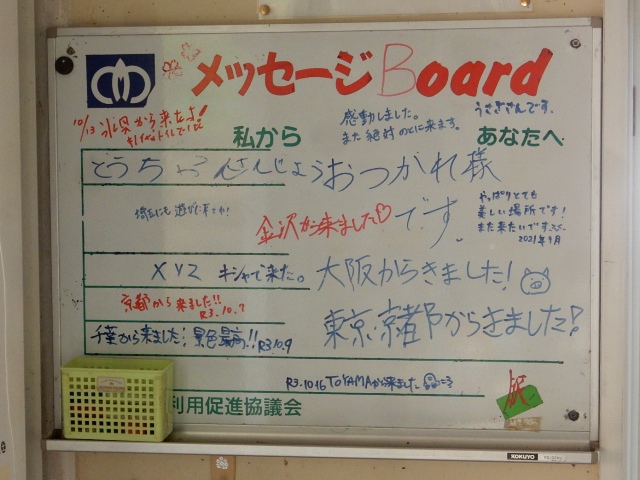 メッセージBoard
10/13 氷見から来たよ!
感動しました。
また絶対のとに来ます。
うさぎさんです。
私から
あなたへ
とうちゃこ さんじょう
おつかれ様
です。
金沢から来ました♡
やっぱりとても
美しい場所です!
また来たいです。
2021年9月
XYZ キシャで来た。
大阪からきました!
京都から来ました!!
R3.10.7
東京・京都からきました!
千葉から来ました; 景色最高!! R3.10.9
R3.10.16 TOYAMAから来ました
利用促進協議会
KOKUYO